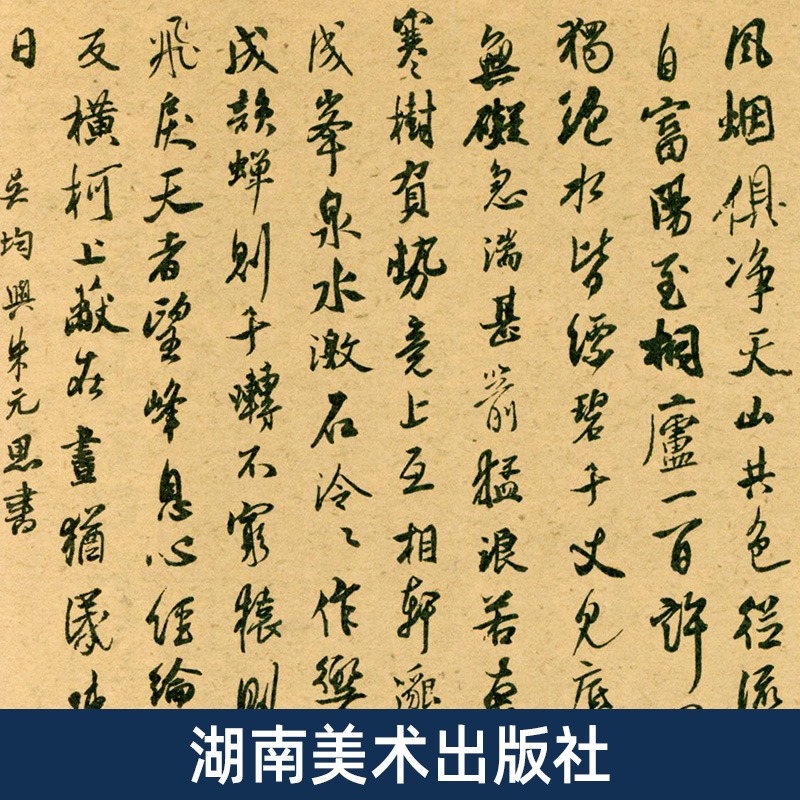 風烟俱净天山共色從流
自富陽至桐廬一百許
獨絶水皆縹碧千丈見底
無礙急湍甚箭猛浪若奔
寒樹負勢竞上互相軒邈
成峯泉水激石泠〻作響
成韻蝉則千囀不窮猿則
飛戾天者望峰息心經綸
反横柯上蔽在晝猶
日
吳均與朱元思書
湖南美术出版社